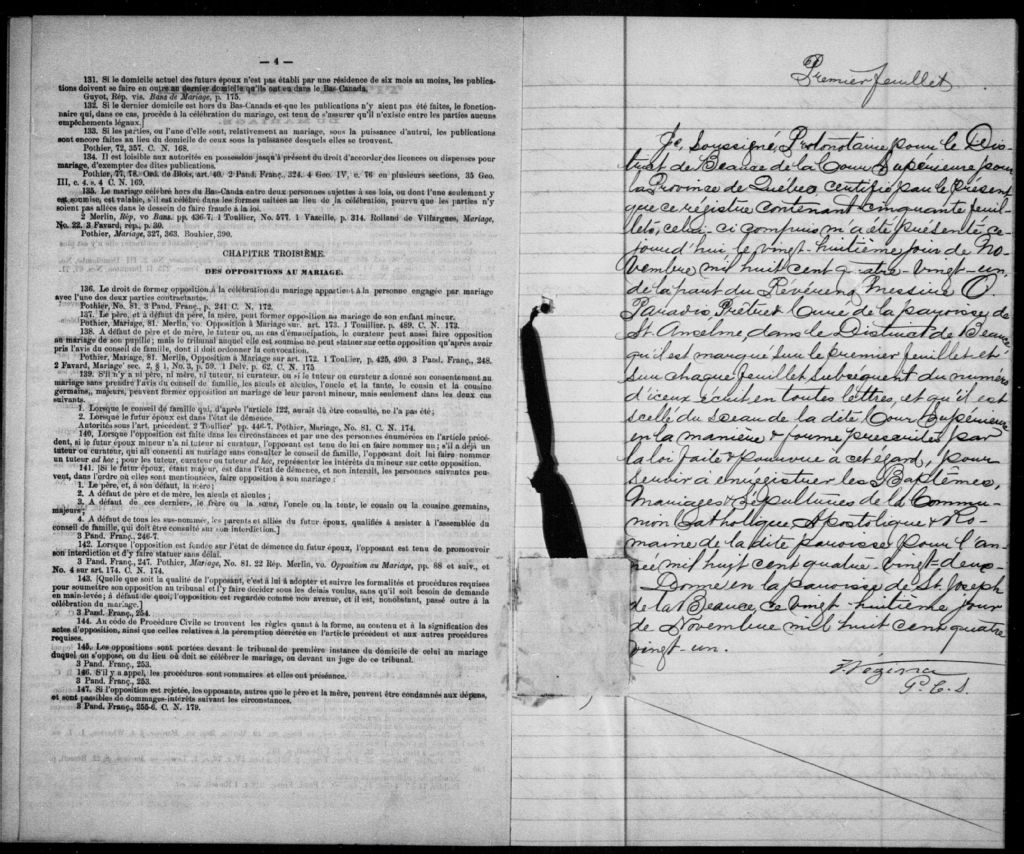 — 4 —
131. Si le domicile actuel des futurs époux n'est pas établi par une résidence de six mois au moins, les publica-
tions doivent se faire en outre au dernier domicile qu'ils ont eu dans le Bas-Canada.
Guyot, Rép. vis. Bans de Mariage, p. 175.
132. Si le dernier domicile est hors du Bas-Canada et que les publications n'y aient pas été faites, le fonction-
naire qui, dans ce cas, procède à la célébration du mariage, est tenu de s'assurer qu'il n'existe entre les parties aucuns
empêchements légaux.]
133. Si les parties, ou l'une d'elle sont, relativement au mariage, sous la puissance d'autrui, les publications
sont encore faites au lieu du domicile de ceux sous la puissance desquels elles se trouvent.
Pothier, 72, 357. C. N. 168.
134. Il est loisible aux autorités en possession jusqu'à présent du droit d'accorder des licences ou dispenses pour
mariage, d'exempter des dites publications.
Pothier, 77, 78. Ord. de Blois, art. 40. 2 Pand. Franç., 324. 4 Geo. IV, c. 76 en plusieurs sections, 35 Geo.
III, c. 4. s. 4 C. N. 169.
135. Le mariage célébré hors du Bas-Canda entre deux personnes sujettes à ses lois, ou dont l'une seulement y
est soumise, est valable, s'il est célébré dans les formes usitées au lieu de la célébration, pourvu que les parties n'y
soient pas allées dans le dessein de faire fraude à la loi.
2 Merlin, Rép, vo Bans. pp. 436-7. 1 Toullier, No. 577. 1 Vazille, p. 314. Rolland de Villargues, Mariage,
No. 22. 3 Favard, rép., p. 30.
Pothier, Mariage, 327, 363. Bouhier, 390.
CHAPITRE TROISIÈME.
DES OPPOSITIONS AU MARIAGE.
136. Le droit de former opposition à la célébration du mariage appartient à la personne engagée par mariage
avec l'une des deux parties contractantes.
Pothier, No. 81. 3 Pand. Franç., p. 241 C. N. 172.
137. Le père, et à défaut du père, la mère, peut former opposition au mariage de son enfant mineur.
Pothier, Mariage, 81. Merlin, vo: Opposition à Mariage sur. art. 173. 1 Touillier, p. 489. C. N. 173.
138. A défaut de père et de mère, le tuteur ou, au cas d'émancipation, le curateur peut aussi faire opposition
au mariage de son pupille; mais le tribunal auquel elle est soumise ne peut statuer sur cette opposition qu'après avoir
pris l'avis du conseil de famille, dont il doit ordonner la convocation.
Pothier, Mariage, 81. Merlin, Opposition à Mariage sur art. 172. 1 Toullier, p. 425, 490. 3 Pand. Franç., 248.
2 Favard, Mariage' sec. 2. § 1, No. 3, p. 59. 1 Delv. p. 62. C. N. 175
139. S'il n'y a ni père, ni mère, ni tuteur, ni curateur, ou si le tuteur ou curateur a donné son consentement au
mariage sans prendre l'avis du conseil de famille, les aïeuls et aïeules, l'oncle et la tante, le cousin et la cousine
germains,, majeurs, peuvent former opposition au mariage de leur parent mineur, mais seulement dans les deux cas
suivants.
1. Lorsque le conseil de famille qui, d'après l'article 122, aurait dû être consulté, ne l'a pas été;
2. Lorsque le futur époux est dans l'état de démence.
Autorités sous l'art. précédent. 2 Toullier' pp. 446-7. Pothier, Mariage, No. 81. C. N. 174.
140. Lorsque l'opposition est faite dans les circonstances et par une des personnes énumérées en l'article précé-
dent, si le futur époux mineur n'a ni tuteur ni curateur, l'opposant est tenu de lui en faire nommer un; s'il a déjà un
tuteur ou curateur, qui ait consenti au mariage sans consulter le conseil de famille, l'opposant doit lui faire nommer
un tuteur ad hoc; pour les tuteur, curateur ou tuteur ad hoc, représenter les intérêts du mineur sur cette opposition.
141. [Si le futur époux, étant majeur, est dans l'état de démence, et non interdit, les personnes suivantes peu-
vent, dans l'ordre où elles sont mentionnées, faire opposition à son mariage:
1. Le père, et, à son défaut, la mère;
2. A défaut de père et de mère, les aïeuls et aïeules;
3. A défaut de ces derniers, le frère ou la sœur, l'oncle ou la tante, le cousin ou la cousine germains,
majeurs;
4. A défaut de tous les sus-nommés, les parents et alliés du futur époux, qualifiés à assister à l'assemblée du
conseil de famille, qui doit être consulté sur son interdiction.]
3 Pand. Franç., 246-7.
142. Lorsque l'opposition est fondée sur l'état de démence du futur époux, l'opposant est tenu de promouvoir
son interdiction et d'y faire statuer sans délai.
3 Pand. Franç., 247. Pothier, Mariage, No. 81. 22 Rép. Merlin, vo. Opposition au Mariage, pp. 88 et suiv., et
No. 4 sur art. 174. C. N. 174.
143. [Quelle que soit la qualité de l'opposant, c'est à lui à adopter et suivre les formalités et procédures requises
pour soumettre son opposition au tribunal et l'y faire décider sous les délais voulus, sans qu'il soit besoin de demande
en main-levée; à défaut de quoi, l'opposition est regardée comme non avenue, et il est, nonobstant, passé outre à la
célébration du mariage.]
3 Pand. Franç., 254.
144. Au code de Procédure Civile se trouvent les règles quant à la forme, au contenu et à la signification des
actes d'opposition, ainsi que celles relatives à la péremption décrétée en l'article précédent et aux autres procédures
requises.
145. Les oppositions sont portées devant le tribunal de première instance du domicile de celui au mariage
duquel on s'oppose, ou du lieu où doit se célébrer le mariage, ou devant un juge de ce tribunal.
3 Pand. Franç., 253.
146. S'il y a appel, les procédures sont sommaires et elles ont préséance.
3 Pand. Franç., 253.
147. Si l'opposition est rejetée, les opposants, autres que le père et la mère, peuvent être condamnés aux dépens,
et sont passibles de dommages-intérêts suivant les circonstances.
3 Pand. Franç., 255-6. C. N. 179.
Premier feuillet
Je, Soussigné, Protonotaire pour le Dis-
trict de Beauce de la Cour Supérieure, pour
la Province de Québec, certifie par le présent
que ce régistre contenant cinquante feuil-
lets, celui-ci compris, m'a été présenté ce-
jourd'hui le vingt-huitième jour de No-
vembre mil huit cent quatre-vingt-un,
de la part du Révérend Messire O
Paradis, Prêtre Curé de la paroisse de
St Anselme, dans le District de Beauce,
qu'il est marqué sur le premier feuillet et
sur chaque feuillet subséquent du numéro
d'iceux écrit en toutes lettres, et qu'il est
scellé du sceau de la dite Cour Supérieure
en la manière & forme prescrites par
la loi faite & pourvue à cet égard, pour
servir à enrégistrer les Baptêmes,
Mariages & Sépultures de la Commu-
nion Catholique Apostolique & Ro-
maine de la dite paroisse pour l'an-
née mil huit cent quatre-vingt-deux.
Donné en la paroisse de St. Joseph
de la Beauce, ce vingt-huitième jour
de Novembre mil huit cent quatre
vingt-un.
Vézina
P. C. S